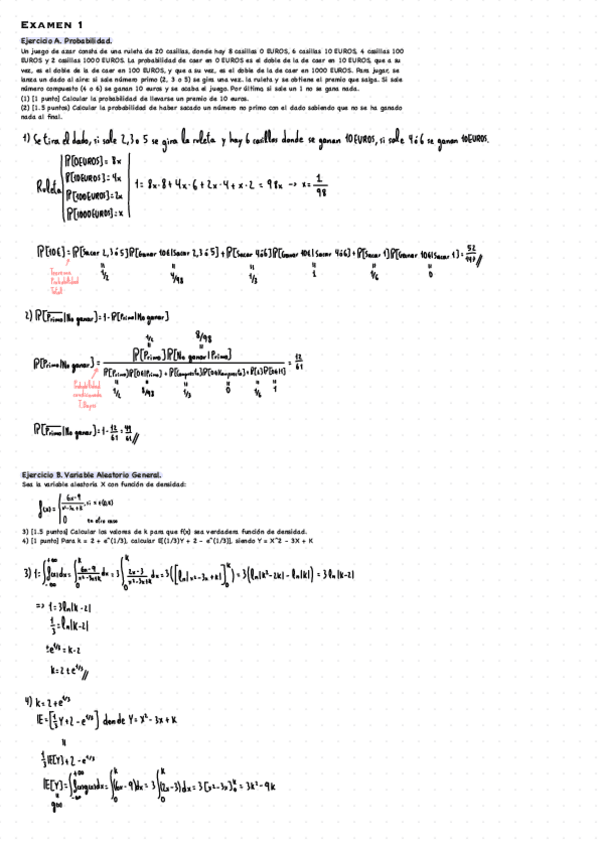 EXAMEN 1
Ejercicio A. Probabilidad.
Un juego de azar consta de una ruleta de 20 casillas, donde hay 8 casillas 0 EUROS, 6 casillas 10 EUROS, 4 casillas 100
EUROS y 2 casillas 1000 EUROS. La probabilidad de caer en 0 EUROS es el doble de la de caer en 10 EUROS, que a su
vez, es el doble de la de caer en 100 EUROS, y que a su vez, es el doble de la de caer en 1000 EUROS. Para jugar, se
lanza un dado al aire: si sale número primo (2, 3 o 5) se gira una vez la ruleta y se obtiene el premio que salga. Si sale
número compuesto (4 o 6) se ganan 10 euros y se acaba el juego. Por último si sale un 1 no se gana nada.
(1) [1 punto] Calcular la probabilidad de llevarse un premio de 10 euros.
(2) [1.5 puntos] Calcular la probabilidad de haber sacado un número no primo con el dado sabiendo que no se ha ganado
nada al final.
1) Se tira el dado, si sale 2, 3 o 5 se gira la ruleta y hay 6 casillas donde se ganan 10 EUROS, si sale 4 ó 6 se ganan 10 EUROS.
Ruleta
P[0 EUROS] = 8x
P[10 EUROS] = 4x
P[100 EUROS] = 2x
P[1000 EUROS] = x
1 = 8x·8 + 4x·6 + 2x·4 + x·2 = 98x → x = 1/98
P[10€] = P[Sacar 2, 3 ó 5]P[Ganar 10€|Sacar 2, 3 ó 5] + P[Sacar 4 ó 6]P[Ganar 10€|Sacar 4 ó 6] + P[Sacar 1]P[Ganar 10€|Sacar 1] = 52/147
1/2 4/98 1/3 1 1/6 0
Teorema
Probabilidad
Total
2) P[Primo|No ganar] = 1 - P[Primo|No ganar]
1/2 8/98
P[Primo|No ganar] = P[Primo]P[No ganar|Primo] = 12/61
P[Primo]P[0€|Primo] + P[Compuesto]P[0€|Compuesto] + P[1]P[0€|1]
1/2 8/98 1/3 0 1/6 1
Probabilidad
condicionada
T. Bayes
P[Primo|No ganar] = 1 - 12/61 = 49/61
Ejercicio B. Variable Aleatorio General.
Sea la variable aleatoria X con función de densidad:
f(x) = 6x-9 / x²-3x+k, si x ∈ (0,k)
0 en otro caso
3) [1.5 puntos] Calcular los valores de k para que f(x) sea verdadera función de densidad.
4) [1 punto] Para k = 2 + e^(1/3), calcular E[(1/3)Y + 2 - e^(1/3)], siendo Y = X^2 - 3X + K
3) 1 = ∫f(x)dx = ∫ 6x-9 / x²-3x+k dx = 3∫ 2x-3 / x²-3x+k dx = 3([ln|x²-3x+k|]) = 3(ln|k²-2k| - ln|k|) = 3 ln|k-2|
=> 1 = 3ln|k-2|
1/3 = ln|k-2|
e^1/3 = k-2
k = 2 + e^1/3
4) k = 2 + e^1/3
E = [1/3 Y + 2 - e^1/3] donde Y = x² - 3x + K
1/3 E[Y] + 2 - e^1/3
E[Y] = ∫f(x)g(x)dx = ∫(6x-9)dx = 3∫(2x-3)dx = 3[x²-3x] = 3k²-9k
g(x)